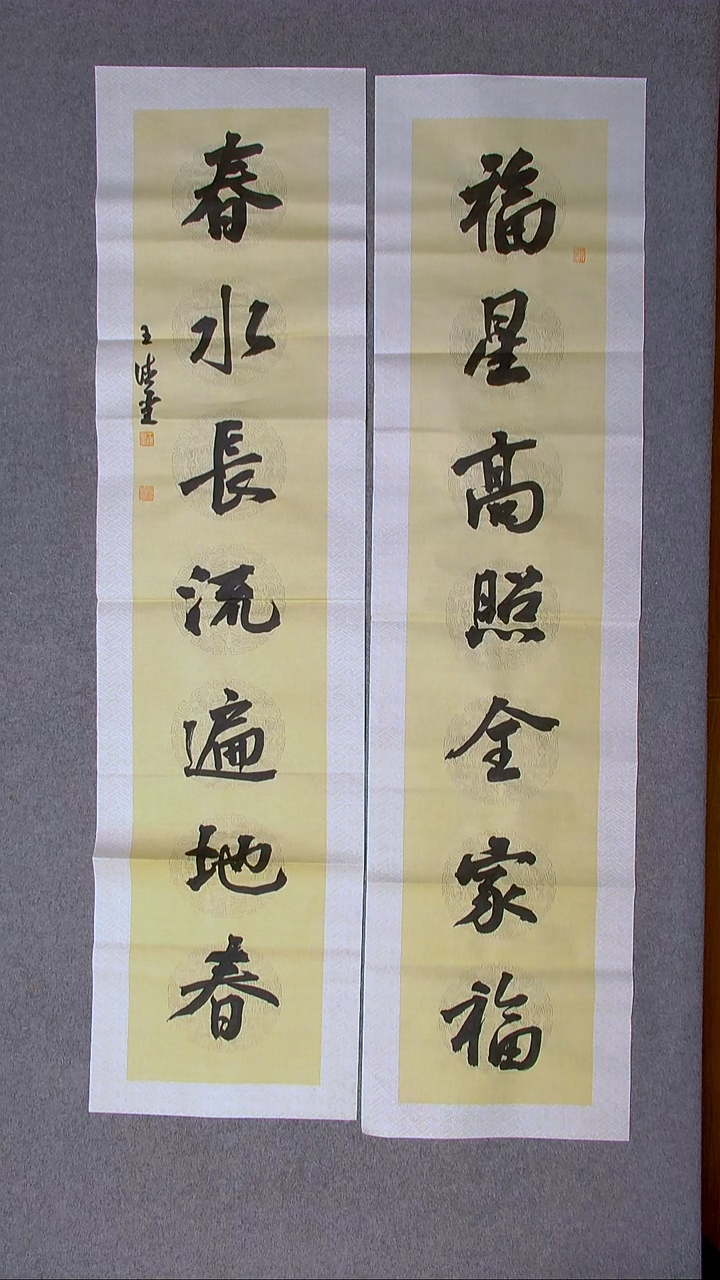 福星高照全家福
春水長流遍地春